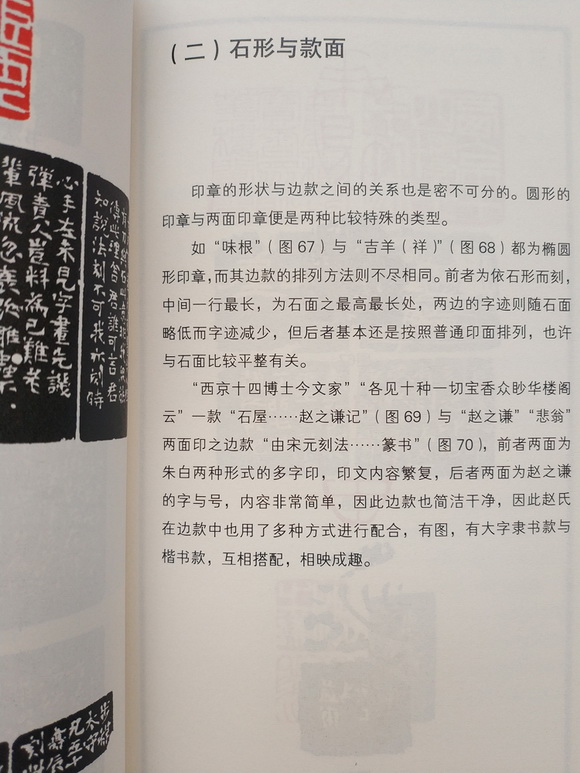 （二）石形与款面
印章的形状与边款之间的关系也是密不可分的。圆形的
印章与两面印章便是两种比较特殊的类型。
如“味根”（图67）与“吉羊（祥）”（图68）都为椭圆
形印章，而其边款的排列方法则不尽相同。前者为依石形而刻，
中间一行最长，为石面之最高最长处，两边的字迹则随石面
略低而字迹减少，但后者基本还是按照普通印面排列，也许
与石面比较平整有关。
“西京十四博士今文家”“各见十种一切宝香众眇华楼阁
云”一款“石屋……赵之谦记”（图69）与“赵之谦”“悲翁”
两面印之边款“由宋元刻法……篆书”（图70），前者两面为
朱白两种形式的多字印，印文内容繁复，后者两面为赵之谦
的字与号，内容非常简单，因此边款也简洁干净，因此赵氏
在边款中也用了多种方式进行配合，有图，有大字隶书款与
楷书款，互相搭配，相映成趣。
知说法刻不可我亦刻時
心手左未見字畫先譏
彈責人豈料為己難老